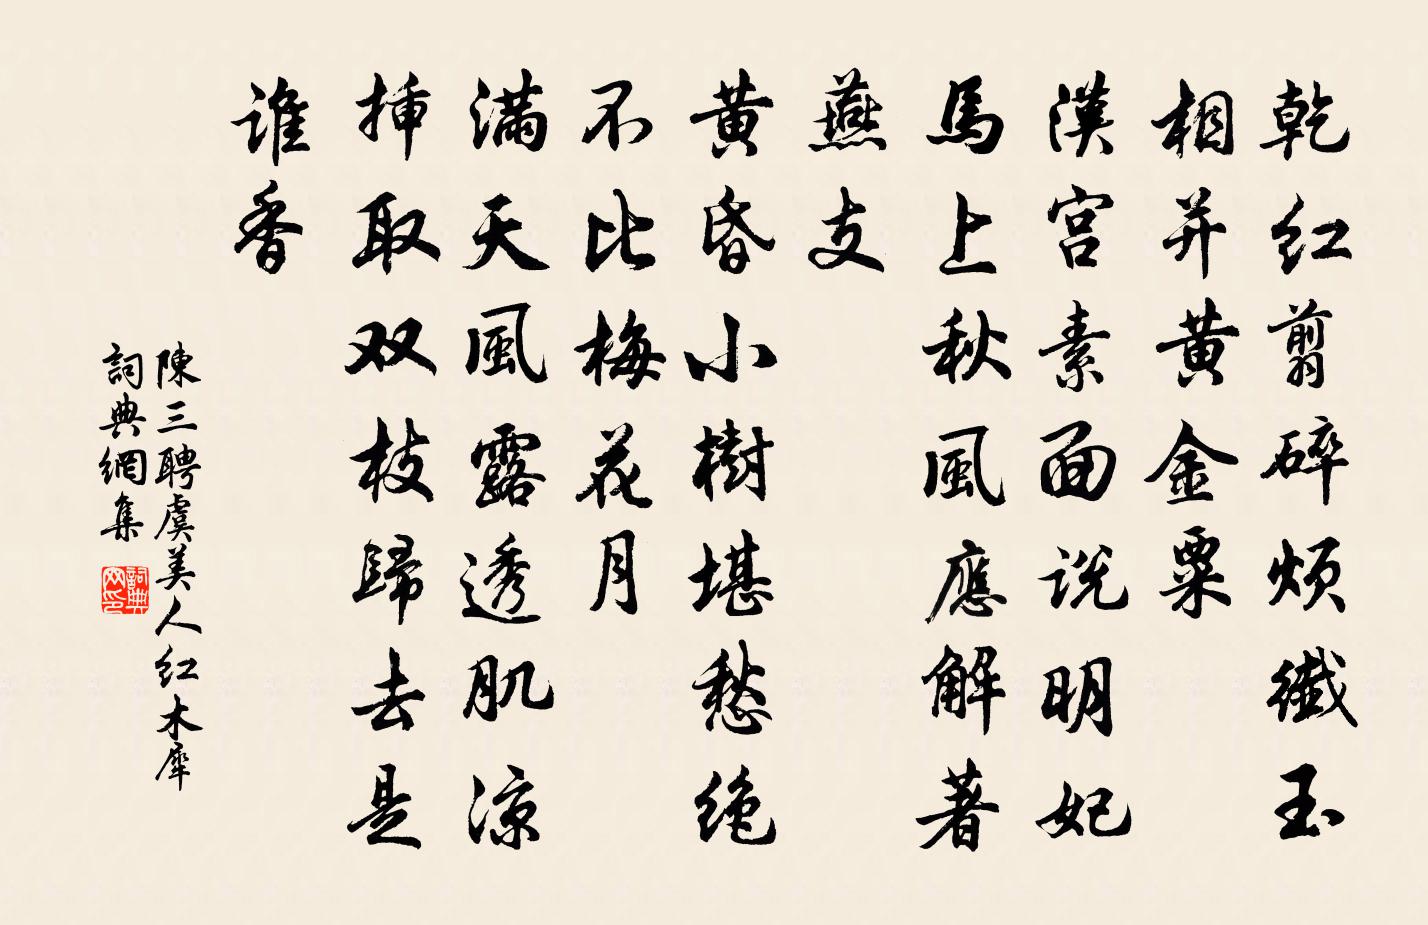 乾红翦碎煩纖玉
相并黃金粟
漢宫素面説明妃
馬上秋風應解著
燕支
黃昏小樹堪愁絶
不比梅花月
滿天風露透肌涼
揷取双枝歸去是
誰香
陳三聘虞美人红木犀
詞典網集
詞典网印